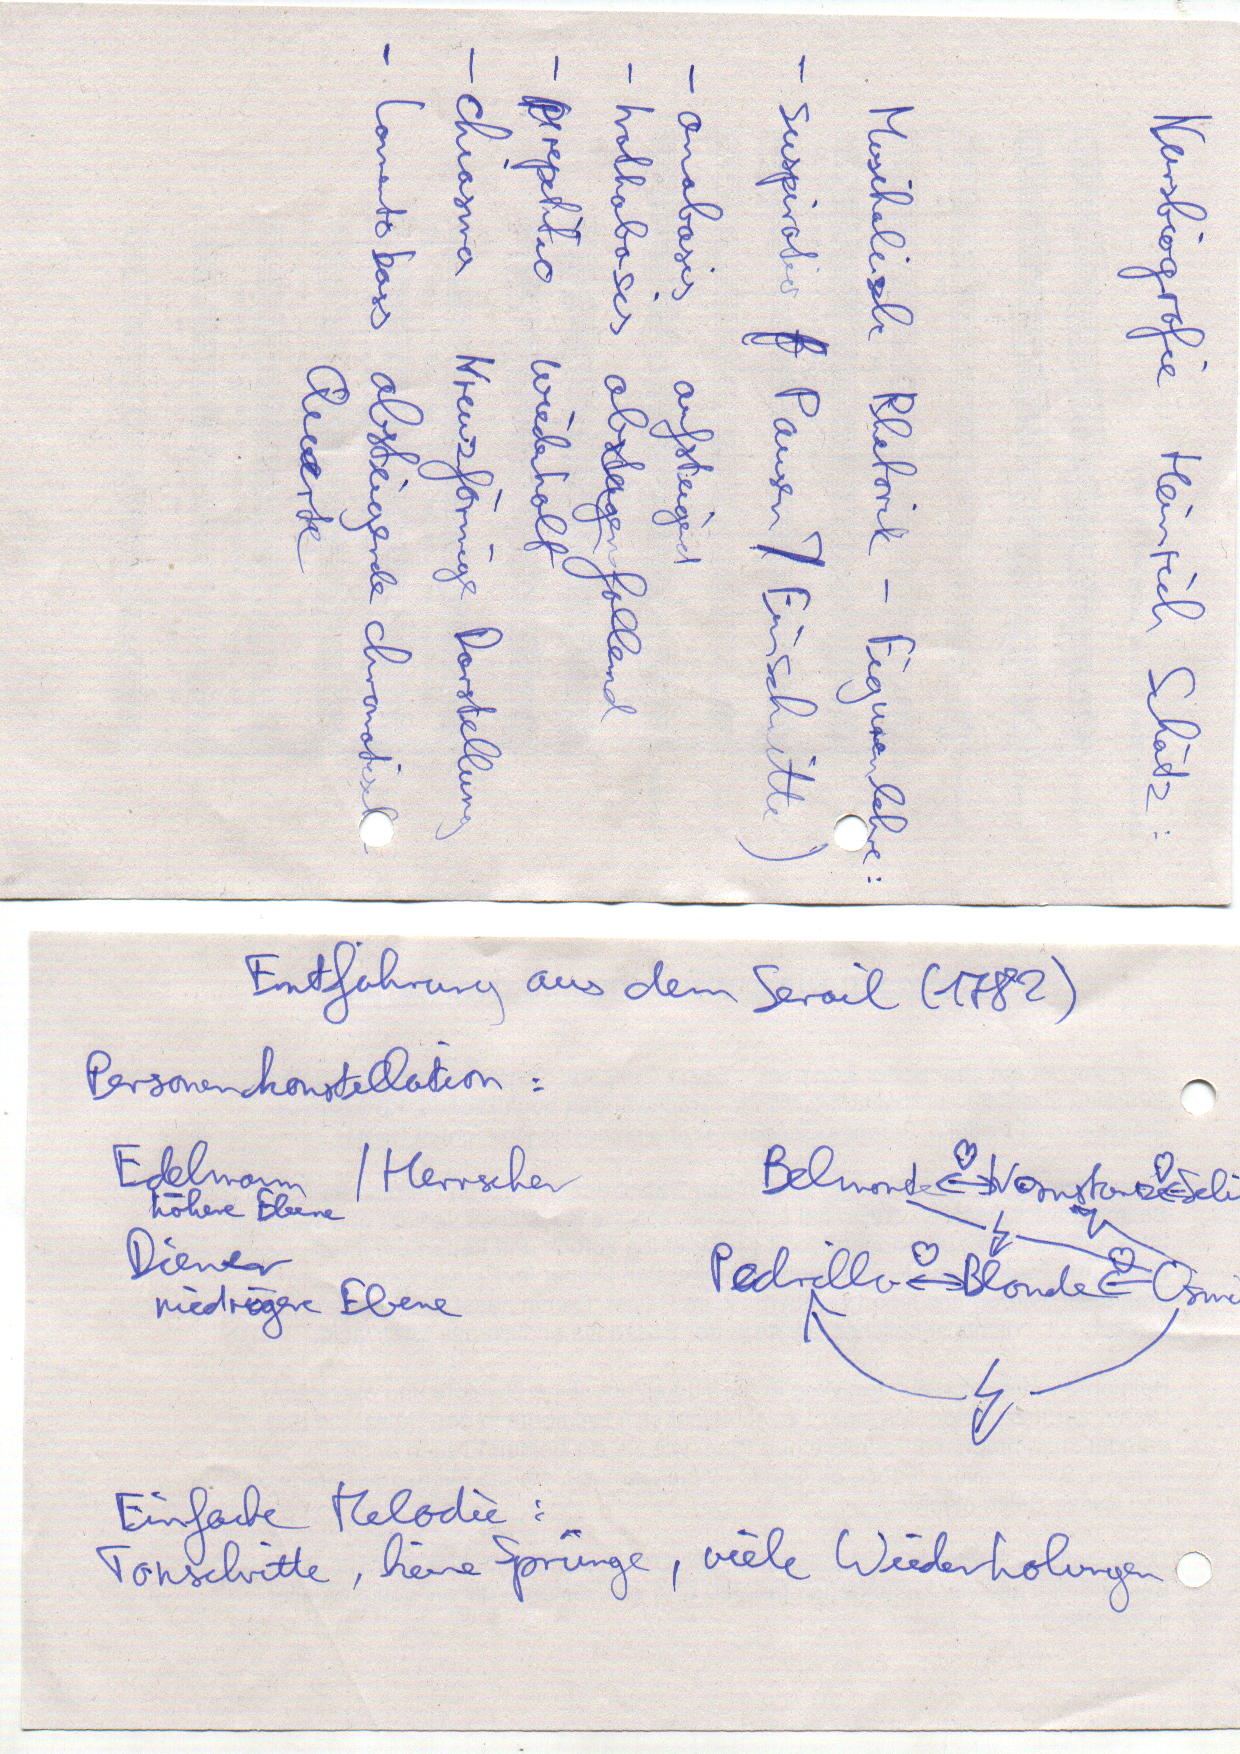 Kurzbiografie Heinrich Schütz:
Musikalische Rhetorik - Figurenlehre:
- Suspiratio Pausen / Einschnitte)
- anabasis aufsteigend
- kathabasis absteigen fallend
- repetitio wiederholt
- chiasma Kreuzförmige Darstellung
- Lamentobass absteigende chromatisch
Quarte
Entführung aus dem Serail (1782)
Personenkonstellation:
Edelmann / Herrscher Belmonte Konstanze Seli
höhere Ebene
Diener Pedrillo Blonde Osmi
niedrigere Ebene
Einfache Melodie:
Tonschritte, keine Sprünge, viele Wiederholungen